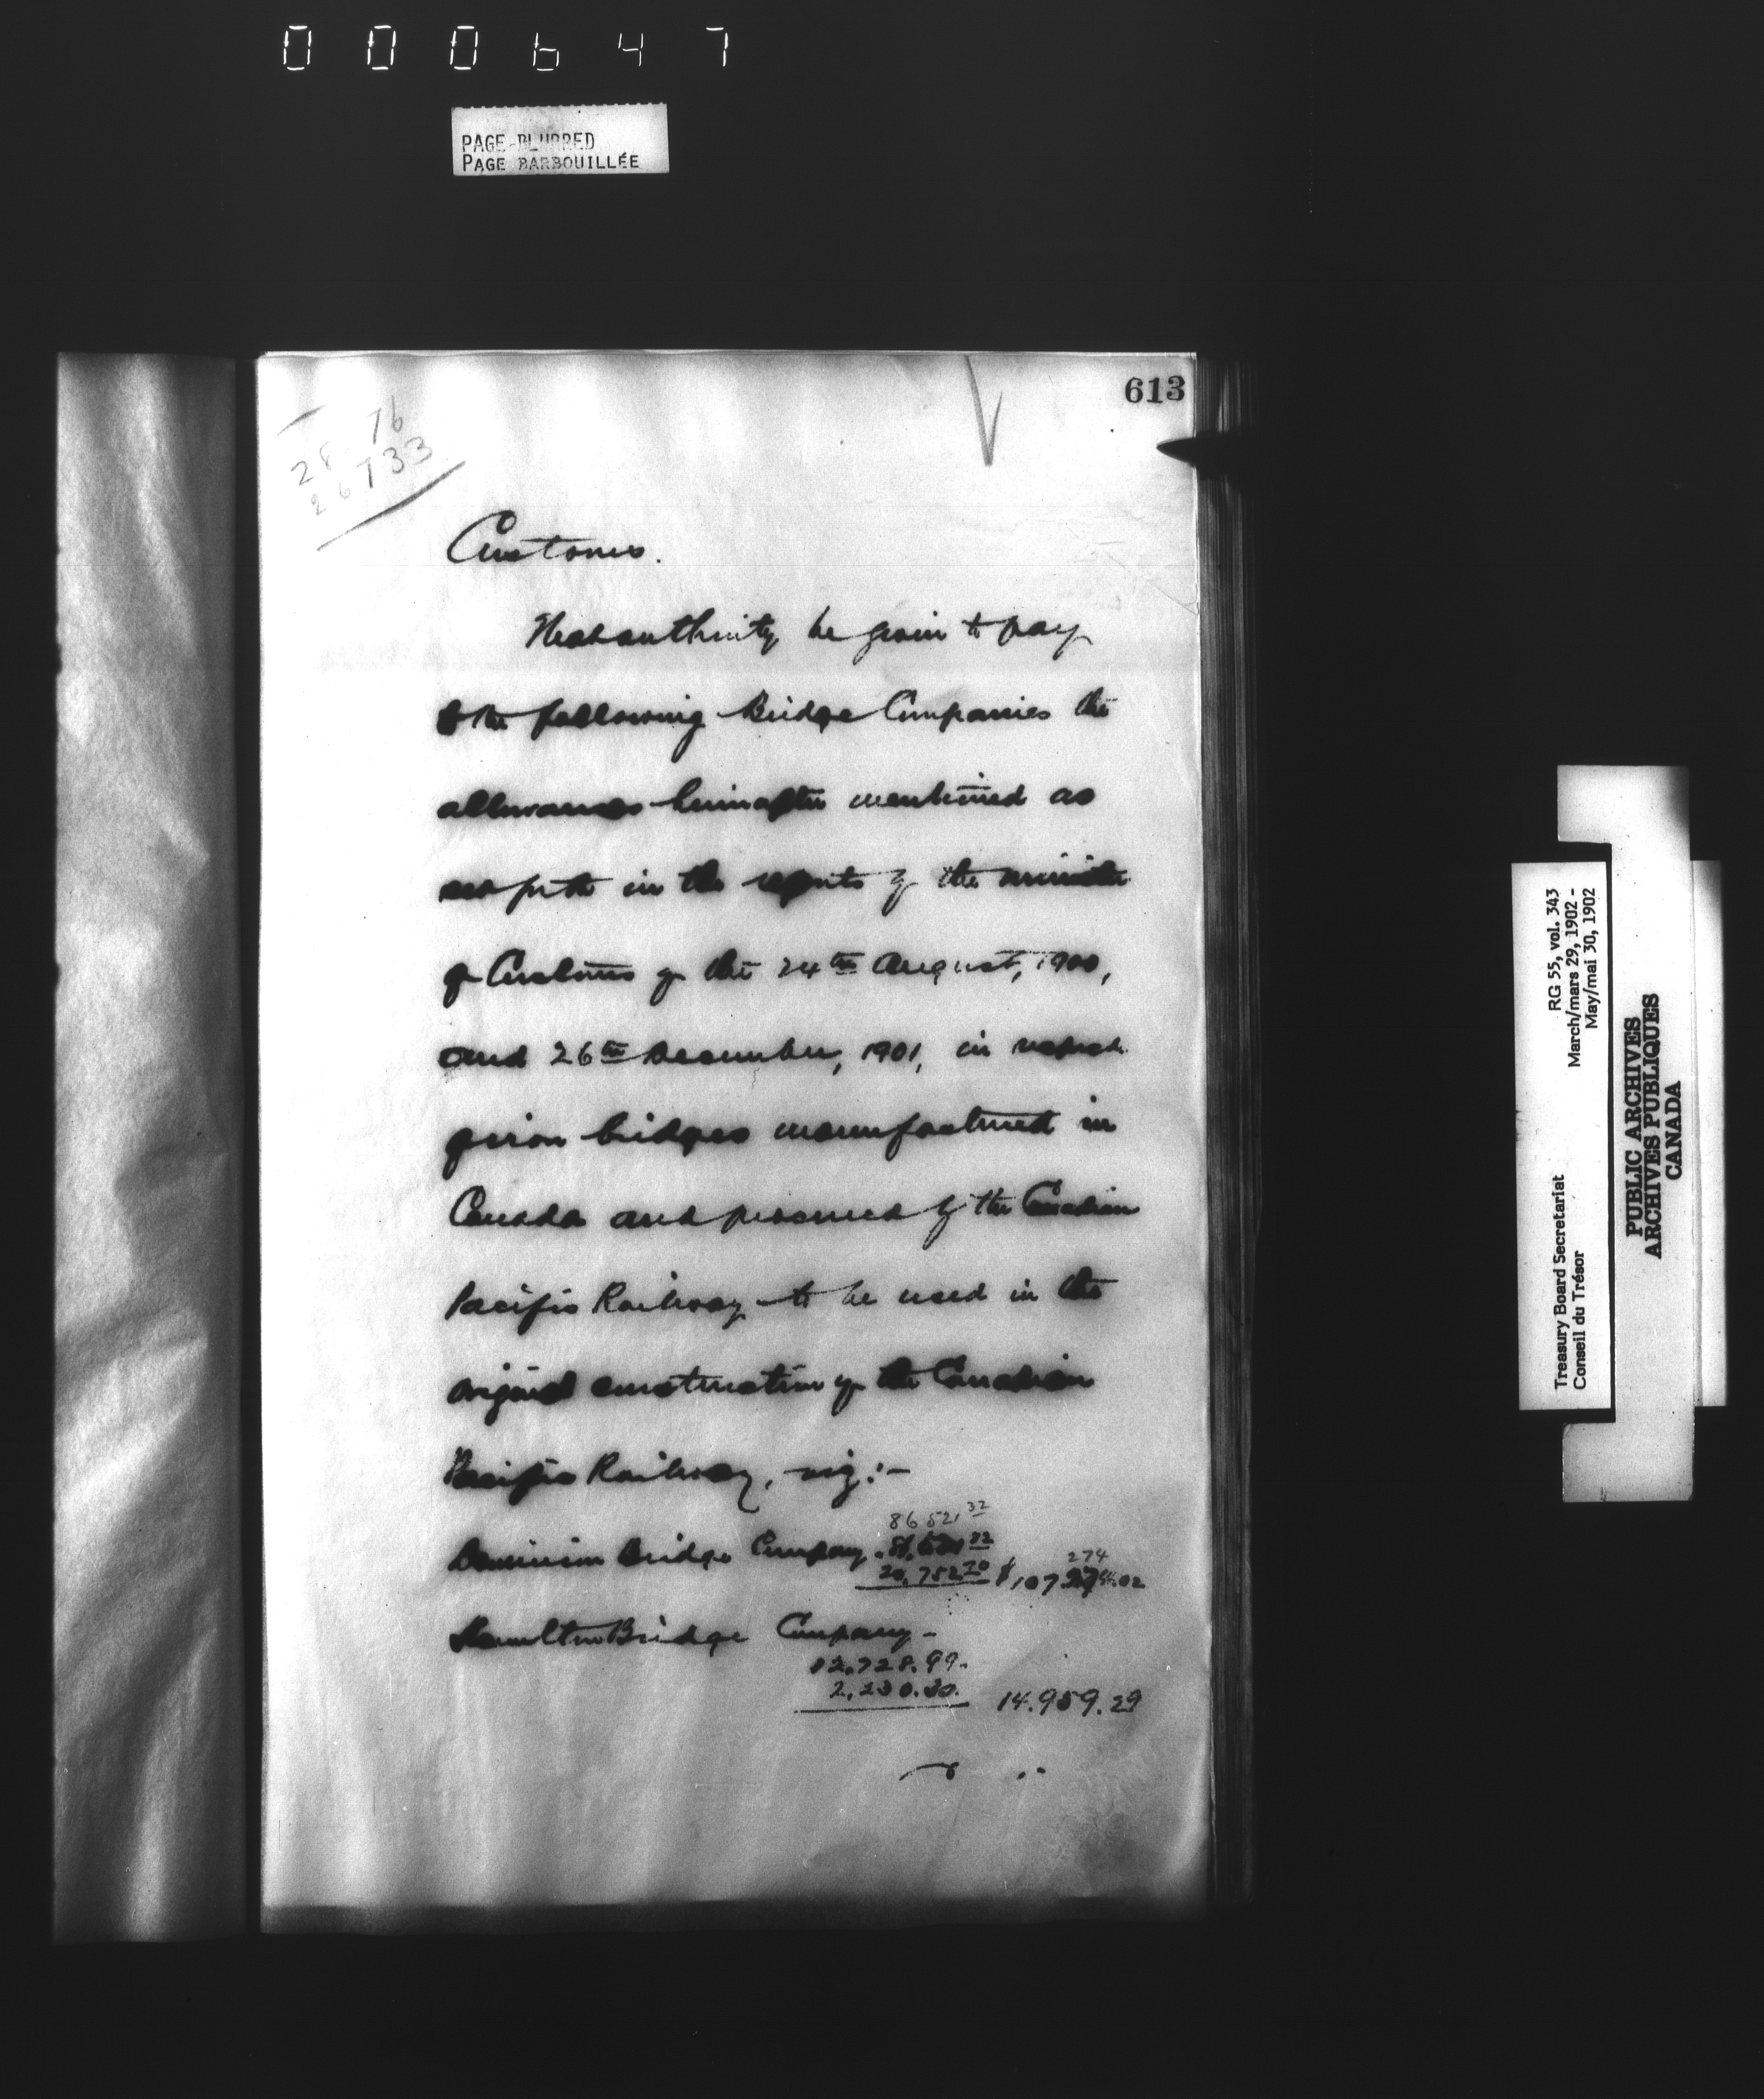 000647
PAGE BLURRED
PAGE BARBOUILLÉE
613
28 76
26 733
Customs.
That authority be given to pay
to the following Bridge Companies the
allowances hereinafter mentioned as
set forth in the reports of the Minister
of Customs of the 24th August, 1900,
and 26th December, 1901, in respect
of iron bridges manufactured in
Canada and procured by the Canadian
Pacific Railway to be used in the
original construction of the Canadian
Pacific Railway, viz:-
86521.32
Dominion Bridge Company.
20,752.70 $107 274.02
Hamilton Bridge Company-
12.728.99.
2,230.30. 14.959.29
RG 55, vol. 343
March/mars 29, 1902 -
May/mai 30, 1902
Treasury Board Secretariat
Conseil du Trésor
PUBLIC ARCHIVES
ARCHIVES PUBLIQUES
CANADA